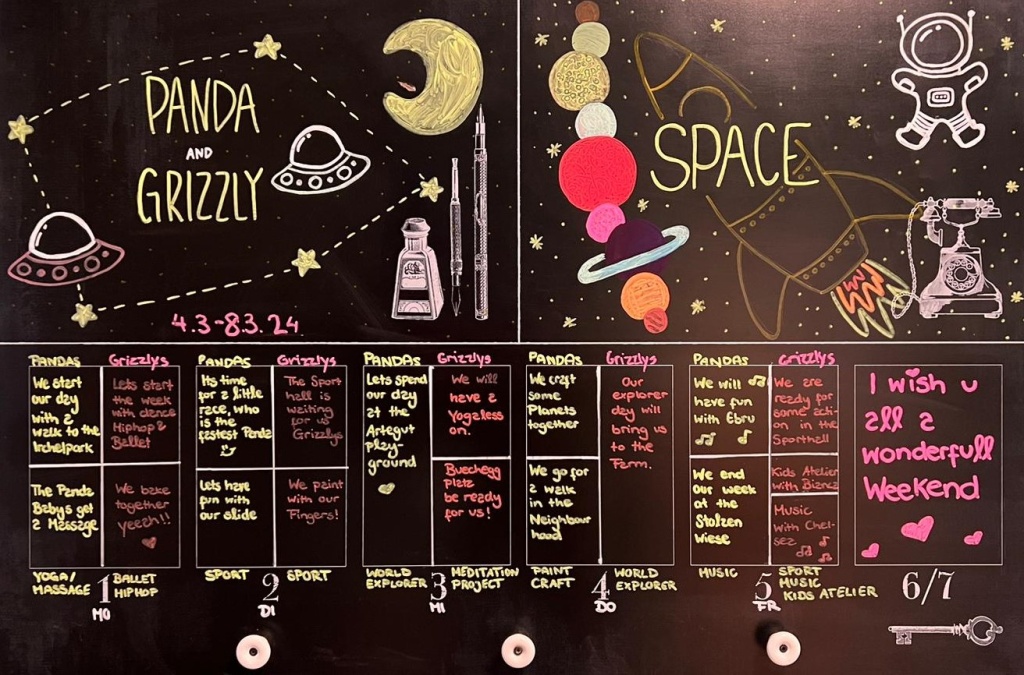 PANDA
AND
GRIZZLY
4.3-8.3.24
SPACE
PANDAS
We start
our day
with a
walk to the
Irchelpark
The Panda
Babys get
a Massage
YOGA/
MASSAGE
Grizzlys
Lets start
the week
with dance
Hiphop &
Ballet
We bake
together
yeezh!!
BALLET
HIPHOP
1
MO
PANDAS
Its time
for a little
race, who
is the
fastest Panda
Lets have
fun with
our slide
SPORT
Grizzlys
The Sport
hall is
waiting
for us
Grizzlys
We paint
with our
Fingers!
SPORT
2
DI
PANDAS
Lets spend
our day
at the
Artegut
play-
ground
WORLD
EXPLORER
Grizzlys
We will
have a
Yogaless
on.
Buechegg
platz
be ready
for us!
MEDITATION
PROJECT
3
MI
PANDAS
We craft
some
Planets
together
We go for
a walk
in the
Neighbour
hood
PAINT
CRAFT
Grizzlys
Our
explorer
day will
bring us
to the
Farm.
WORLD
EXPLORER
4
DO
PANDAS
We will
have fun
with Ebru
We end
our week
at the
Stolzen
Wiese
MUSIC
Grizzlys
We are
ready for
some acti-
on in the
Sporthall
Kids Atelier
with Bianca
Music
with Chel-
sea
SPORT
MUSIC
KIDS ATELIER
5
FR
I wish u
all a
wonderfull
Weekend
6/7